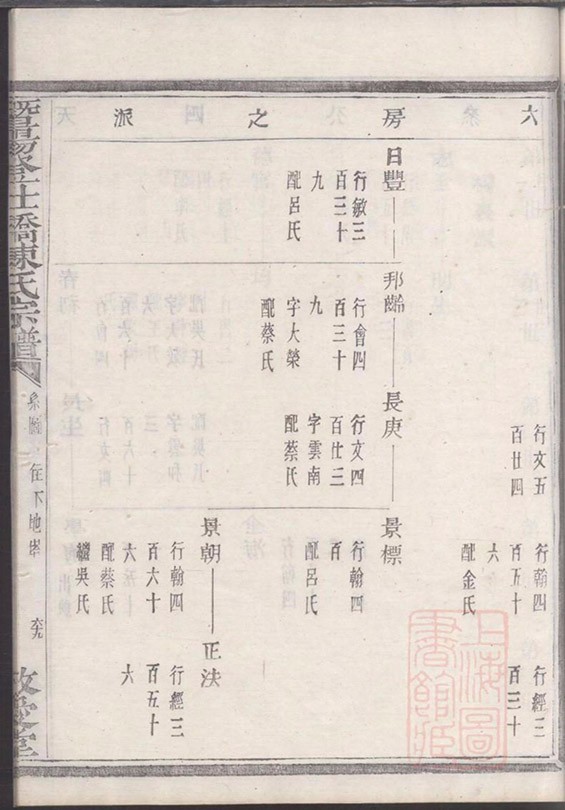 六房之派
行文五
百廿四
行翰四
百五十
六
配金氏
行經三
百三十
日豐
行敏三
百三十
九
配呂氏
邦
行會四
百三十
九
字大榮
配蔡氏
長庚
行文四
百廿三
字雲南
配蔡氏
景標
行翰四
百
配呂氏
景朝
行翰四
百六十
六
配蔡氏
繼吳氏
正法
行經三
百五十
六
暨陽
橋陳氏宗譜
系圖
住下地
上海圖書館藏